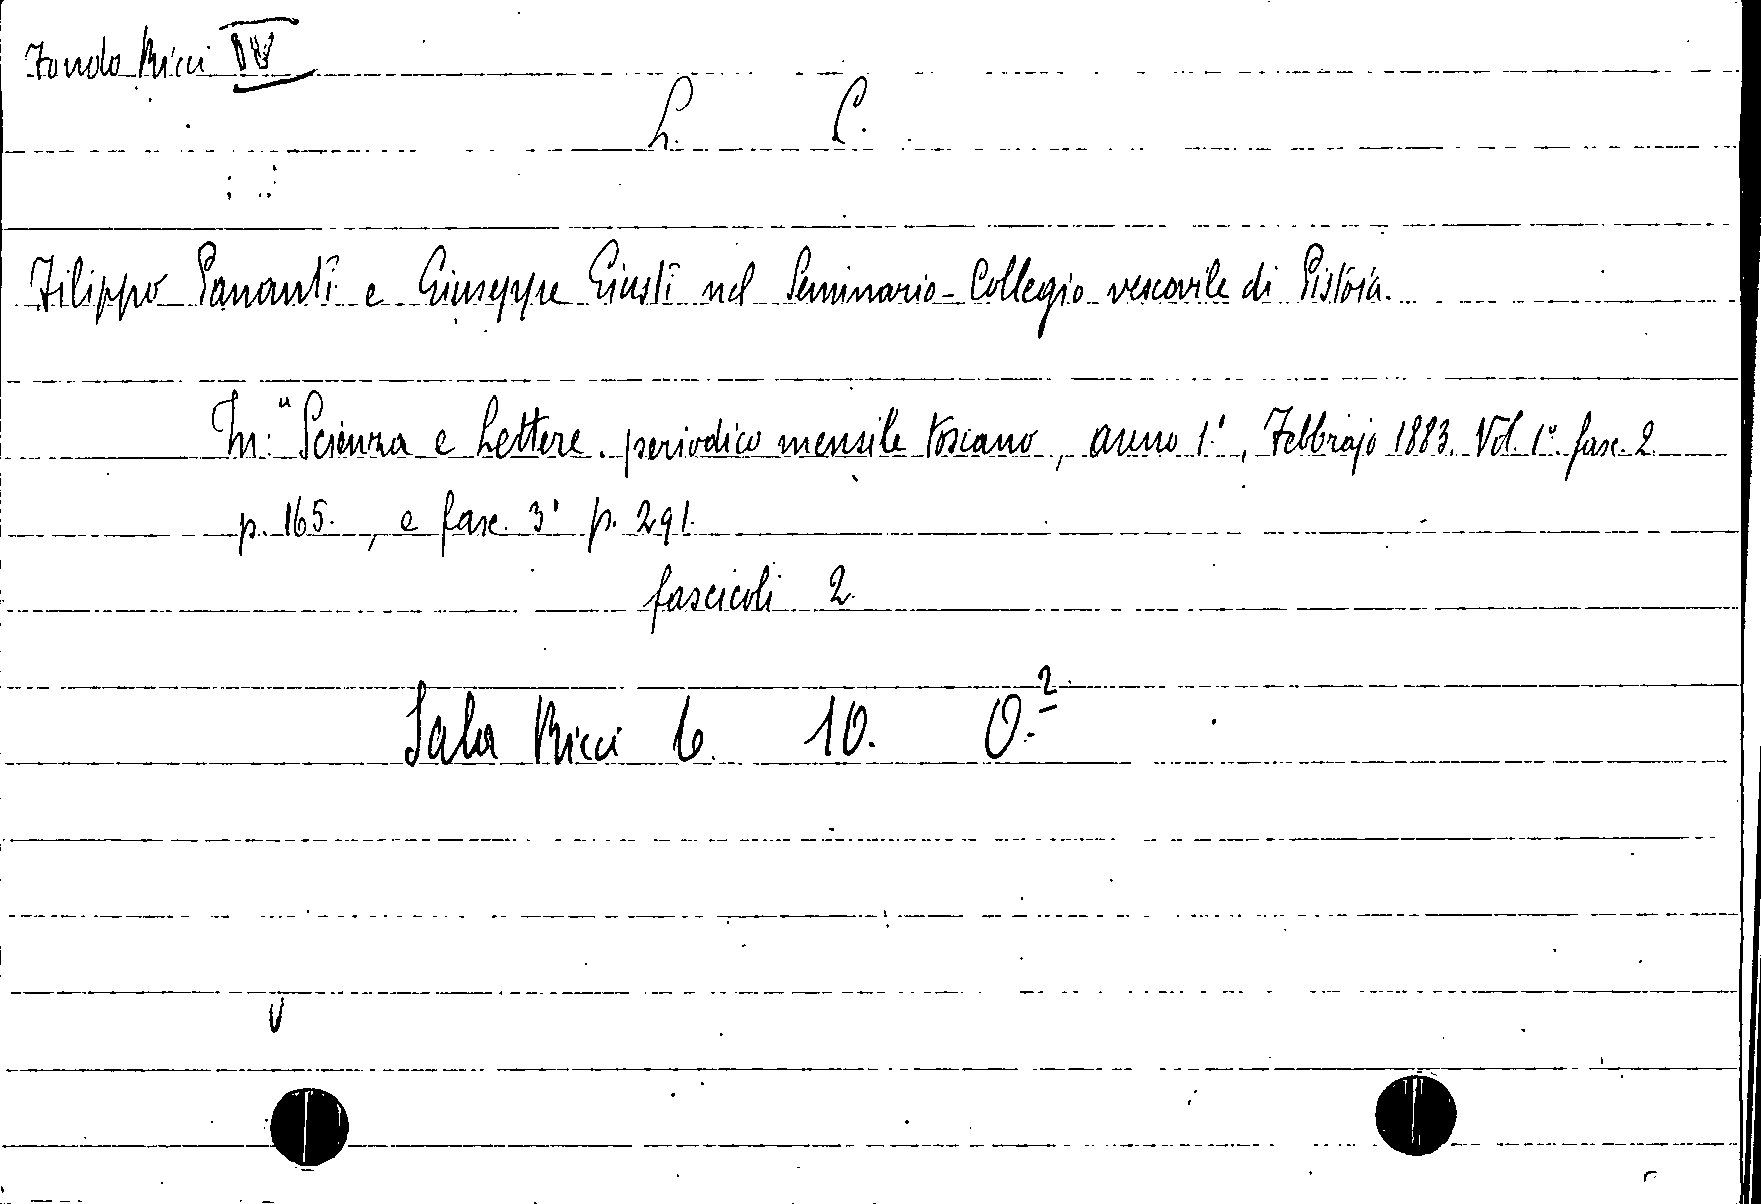 Fondo Ricci IV
L. C.
Filippo Pananti e Giuseppe Giusti nel Seminario-Collegio vescovile di Pistoia.
In: "Scienza e Lettere. periodico mensile toscano, anno 1°, Febbrajo 1883. Vol. 1°. fasc. 2.
p. 165., e fasc. 3° p. 291.
fascicoli 2.
Sala Ricci 6. 10. O.²